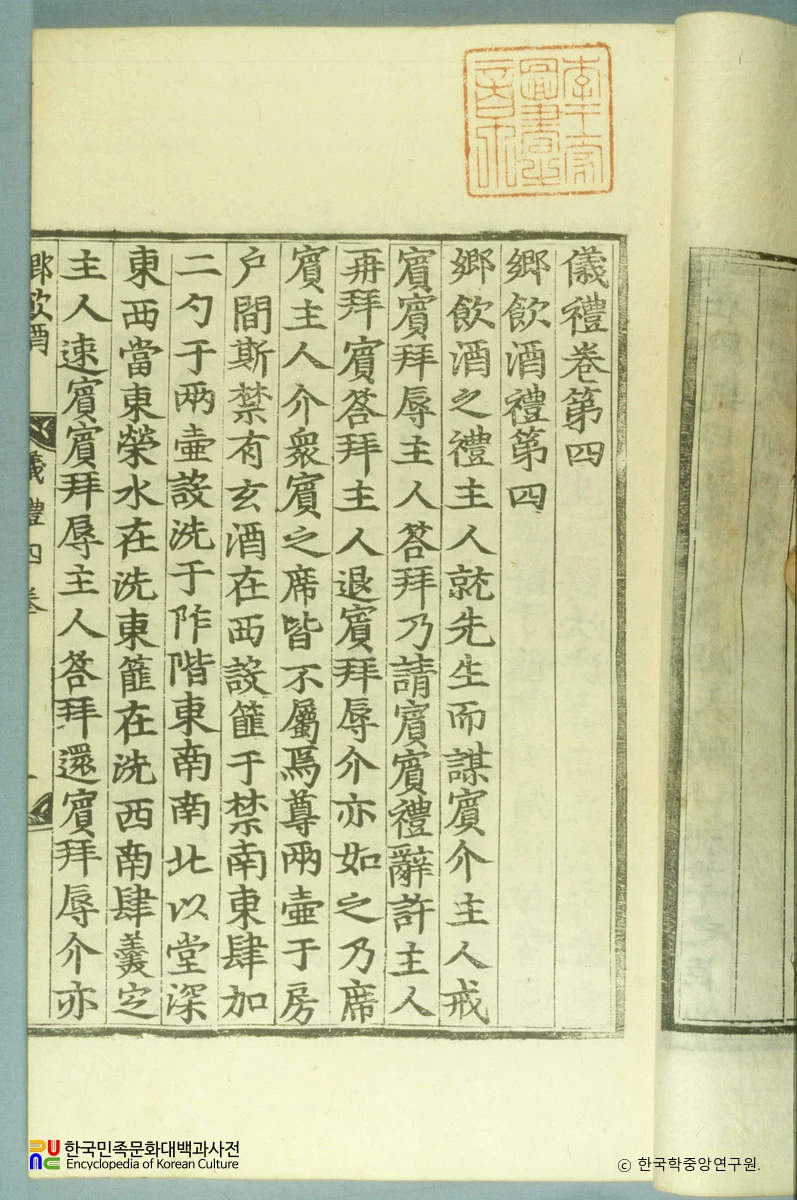 李王家圖書之章
儀禮卷第四
鄉飲酒禮第四
鄉飲酒之禮主人就先生而謀賓介主人戒
賓賓拜辱主人荅拜乃請賓賓禮辭許主人
再拜賓荅拜主人退賓拜辱介亦如之乃席
賓主人介衆賓之席皆不屬焉尊兩壺于房
户間斯禁有玄酒在西設篚于禁南東肆加
二勺于兩壺設洗于阼階東南南北以堂深
東西當東榮水在洗東篚在洗西南肆羹定
主人速賓賓拜辱主人荅拜還賓拜辱介亦
鄉飲酒 儀禮四卷 一
한국민족문화대백과사전
Encyclopedia of Korean Culture
© 한국학중앙연구원.